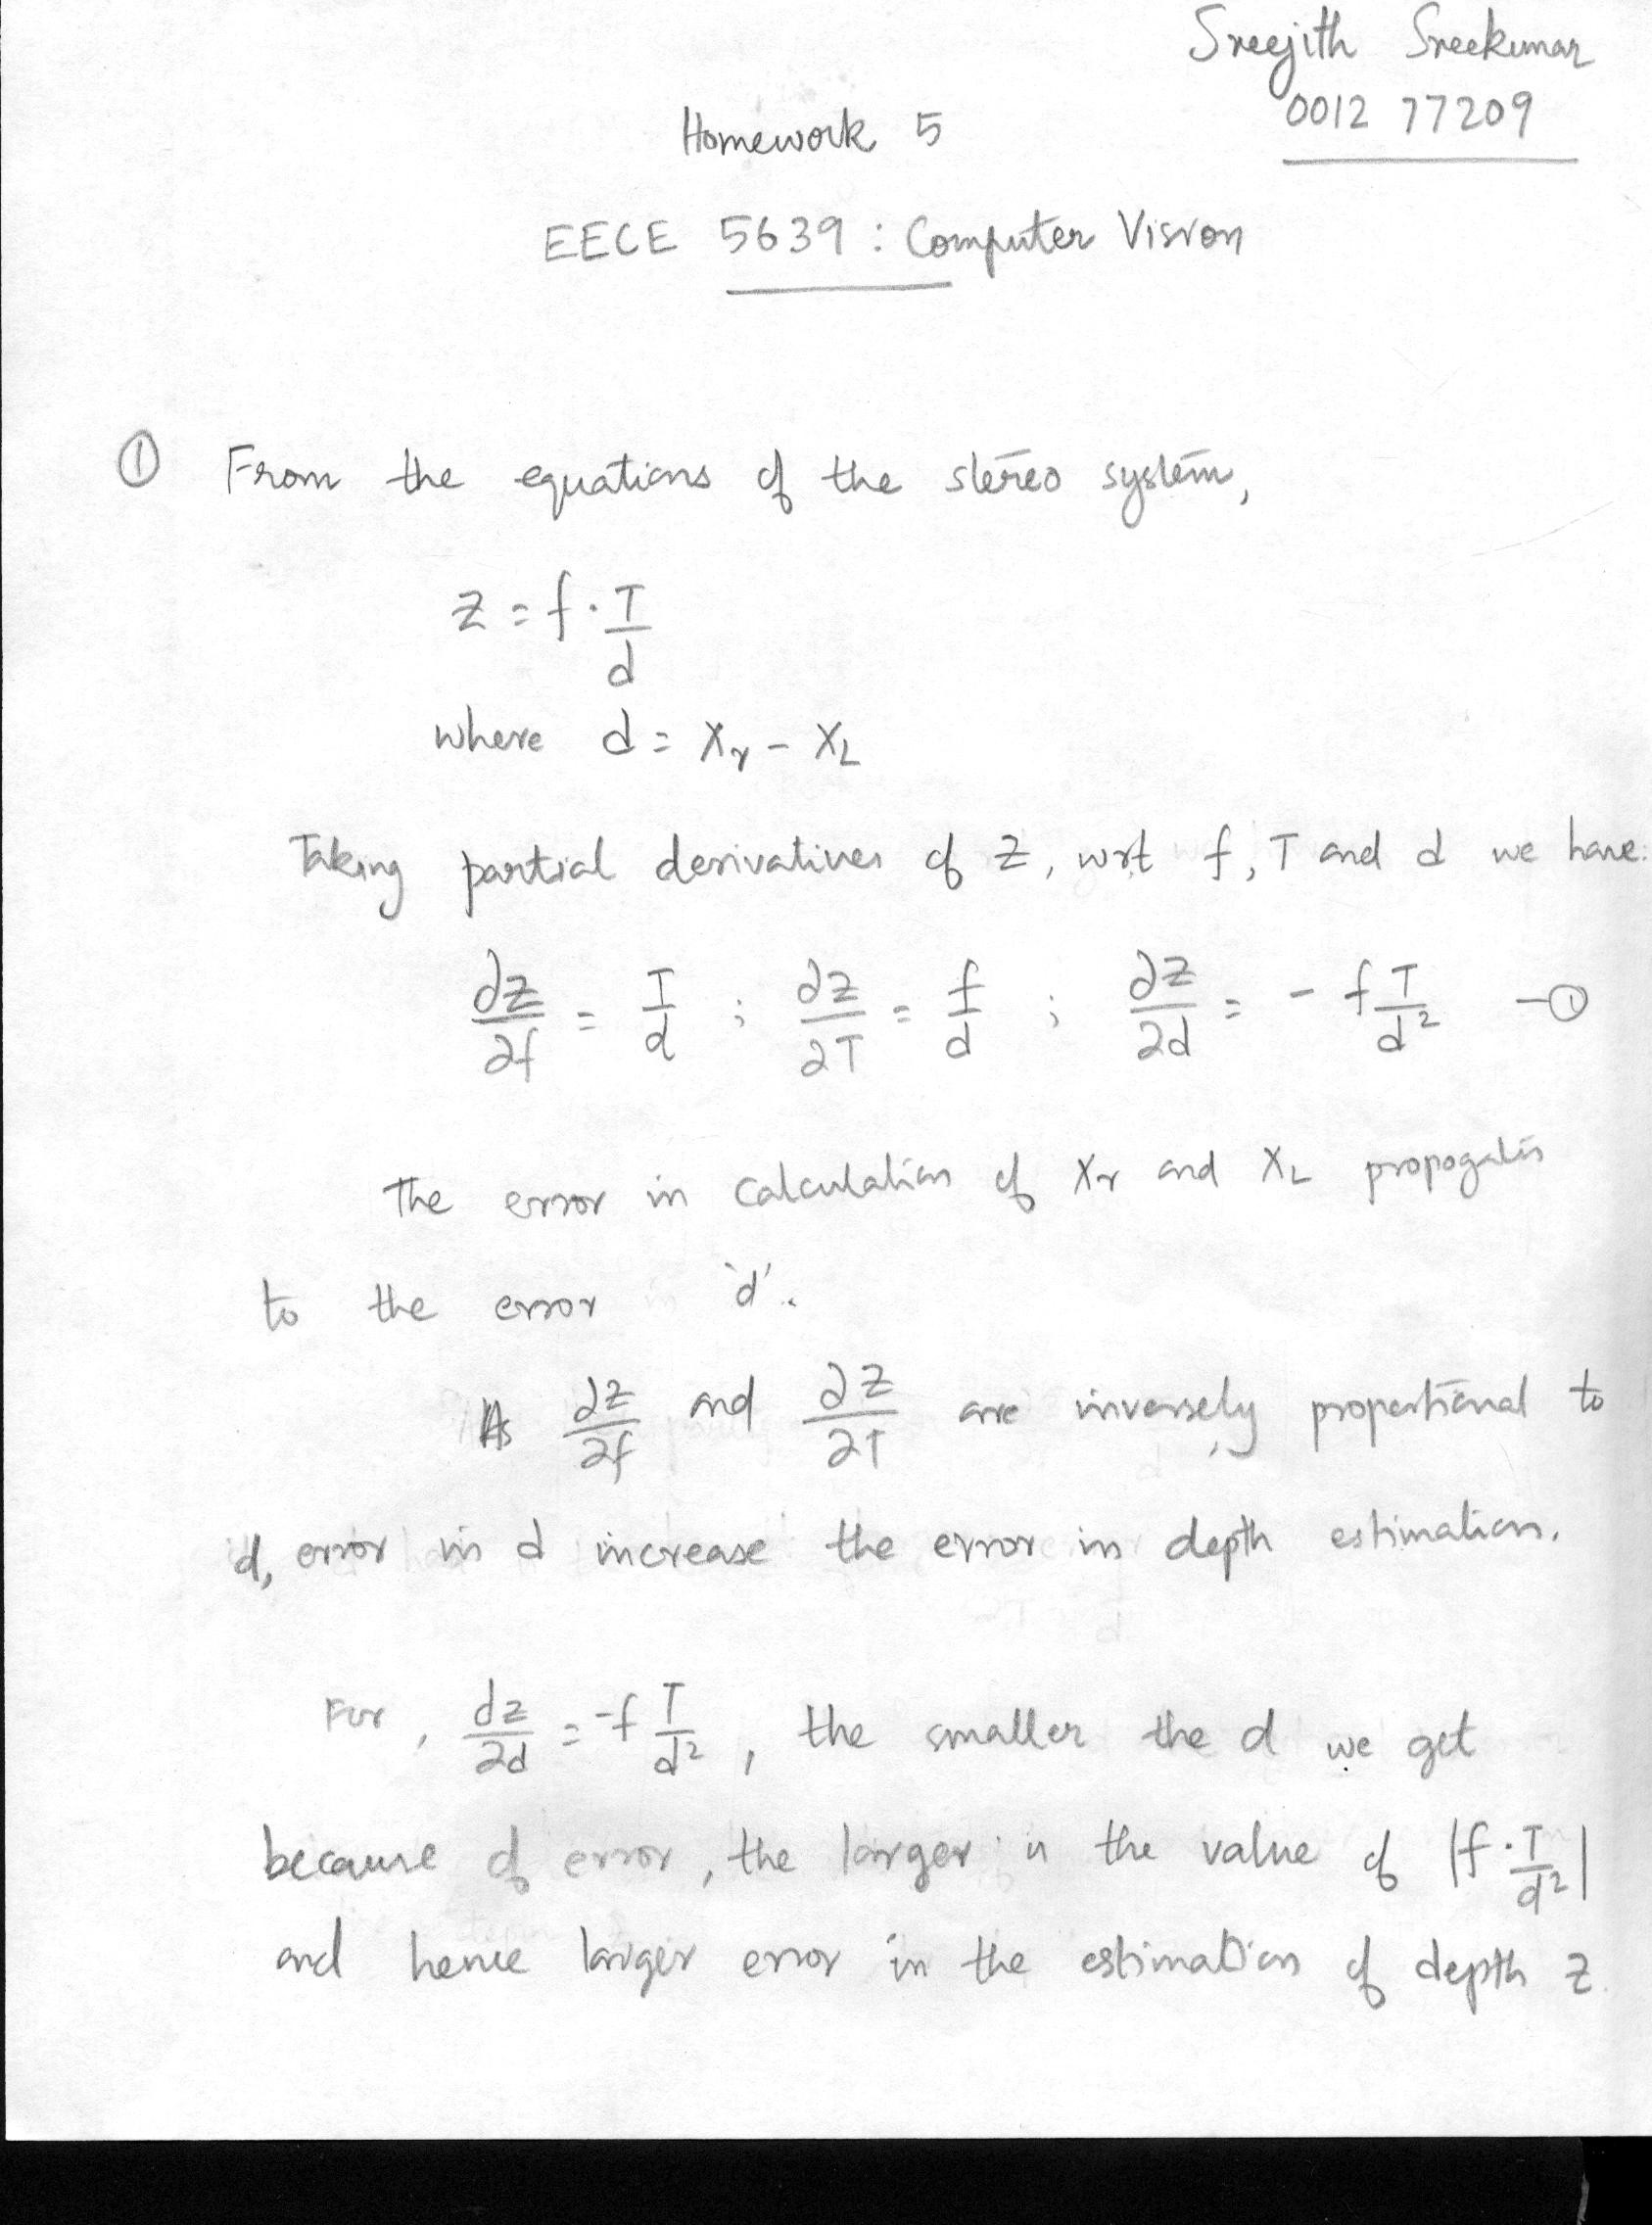 Sreejith Sreekumar
0012 77209
Homework 5
EECE 5639 : Computer Vision
① From the equations of the stereo system,
Z = f · T/d
where d = Xr - XL
Taking partial derivatives of Z, wrt f, T and d we have:
∂Z/∂f = T/d ; ∂Z/∂T = f/d ; ∂Z/∂d = - f T/d² —①
The error in calculation of Xr and XL propogates
to the error 'd'.
As ∂Z/∂f and ∂Z/∂T are inversely proportional to
d, error in d increase the error in depth estimation.
For, ∂Z/∂d = -f T/d², the smaller the d we get
because of error, the larger is the value of |f · T/d²|
and hence larger error in the estimation of depth Z.